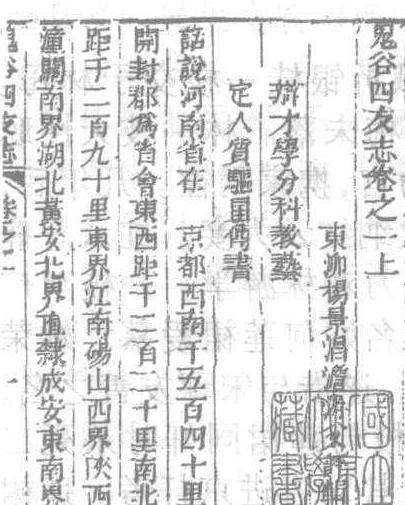 鬼谷四友志卷之一上
東泖楊景淐澹游父
辨才學分科教藝
定人質驅囯傳書
話說河南省在 京都西南千五百四十里
開封郡爲省會東西距千二百二十里南北
距千二百九十里東界江南碭山西界陝西
潼關南界湖北黃安北界直隷成安東南界
鬼谷四友志 一